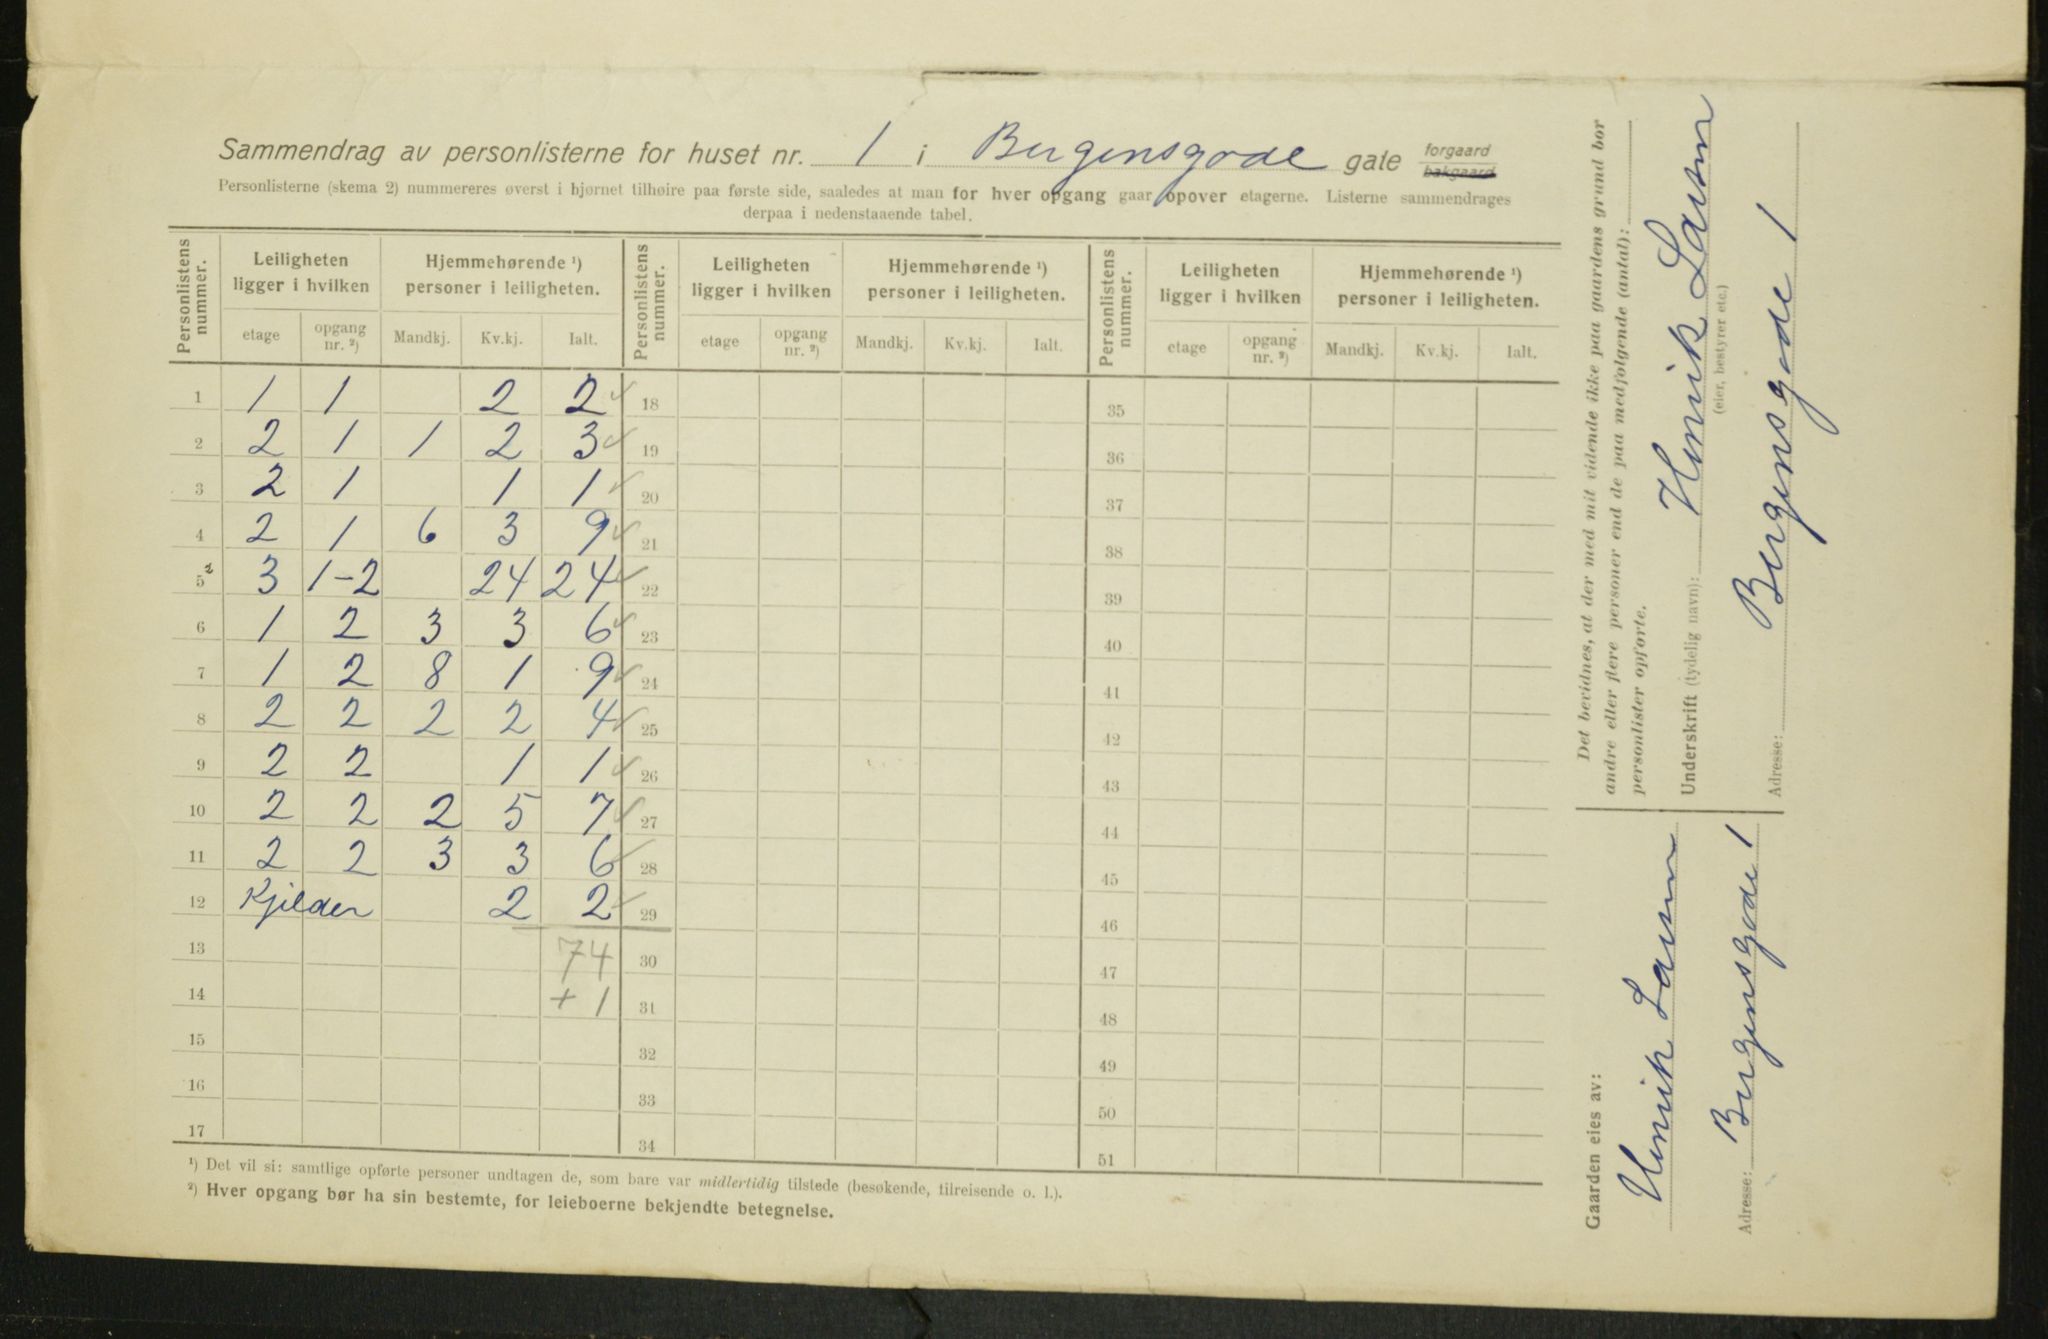 Sammendrag av personlisterne for huset nr. 1 i Bergensgade gate forgaard bakgaard
Personlisterne (skema 2) nummereres øverst i hjørnet tilhøire paa første side, saaledes at man for hver opgang gaar opover etagerne. Listerne sammendrages
derpaa i nedenstaaende tabel.
Personlistens nummer. | Leiligheten ligger i hvilken | Hjemmehørende ¹) personer i leiligheten. | Personlistens nummer. | Leiligheten ligger i hvilken | Hjemmehørende ¹) personer i leiligheten. | Personlistens nummer. | Leiligheten ligger i hvilken | Hjemmehørende ¹) personer i leiligheten.
etage | opgang nr. ²) | Mandkj. | Kv.kj. | Ialt. | etage | opgang nr. ²) | Mandkj. | Kv.kj. | Ialt. | etage | opgang nr. ²) | Mandkj. | Kv.kj. | Ialt.
1 | 1 | 1 | | 2 | 2 ✓ | 18 | 35
2 | 2 | 1 | 1 | 2 | 3 ✓ | 19 | 36
3 | 2 | 1 | | 1 | 1 ✓ | 20 | 37
4 | 2 | 1 | 6 | 3 | 9 ✓ | 21 | 38
5 2 | 3 | 1-2 | | 24 | 24 ✓ | 22 | 39
6 | 1 | 2 | 3 | 3 | 6 ✓ | 23 | 40
7 | 1 | 2 | 8 | 1 | 9 ✓ | 24 | 41
8 | 2 | 2 | 2 | 2 | 4 ✓ | 25 | 42
9 | 2 | 2 | | 1 | 1 ✓ | 26 | 43
10 | 2 | 2 | 2 | 5 | 7 ✓ | 27 | 44
11 | 2 | 2 | 3 | 3 | 6 ✓ | 28 | 45
12 | Kjelder | | 2 | 2 ✓ | 29 | 46
13 | 74 | 30 | 47
14 | + 1 | 31 | 48
15 | 32 | 49
16 | 33 | 50
17 | 34 | 51
¹) Det vil si: samtlige opførte personer undtagen de, som bare var midlertidig tilstede (besøkende, tilreisende o. l.).
²) Hver opgang bør ha sin bestemte, for leieboerne bekjendte betegnelse.
Det bevidnes, at der med mit vidende ikke paa gaardens grund bor
andre eller flere personer end de paa medfølgende (antal):
personlister opførte.
Underskrift (tydelig navn): Henrik Larsen
(eier, bestyrer etc.)
Adresse: Bergensgade 1
Gaarden eies av:
Henrik Larsen
Adresse: Bergensgade 1